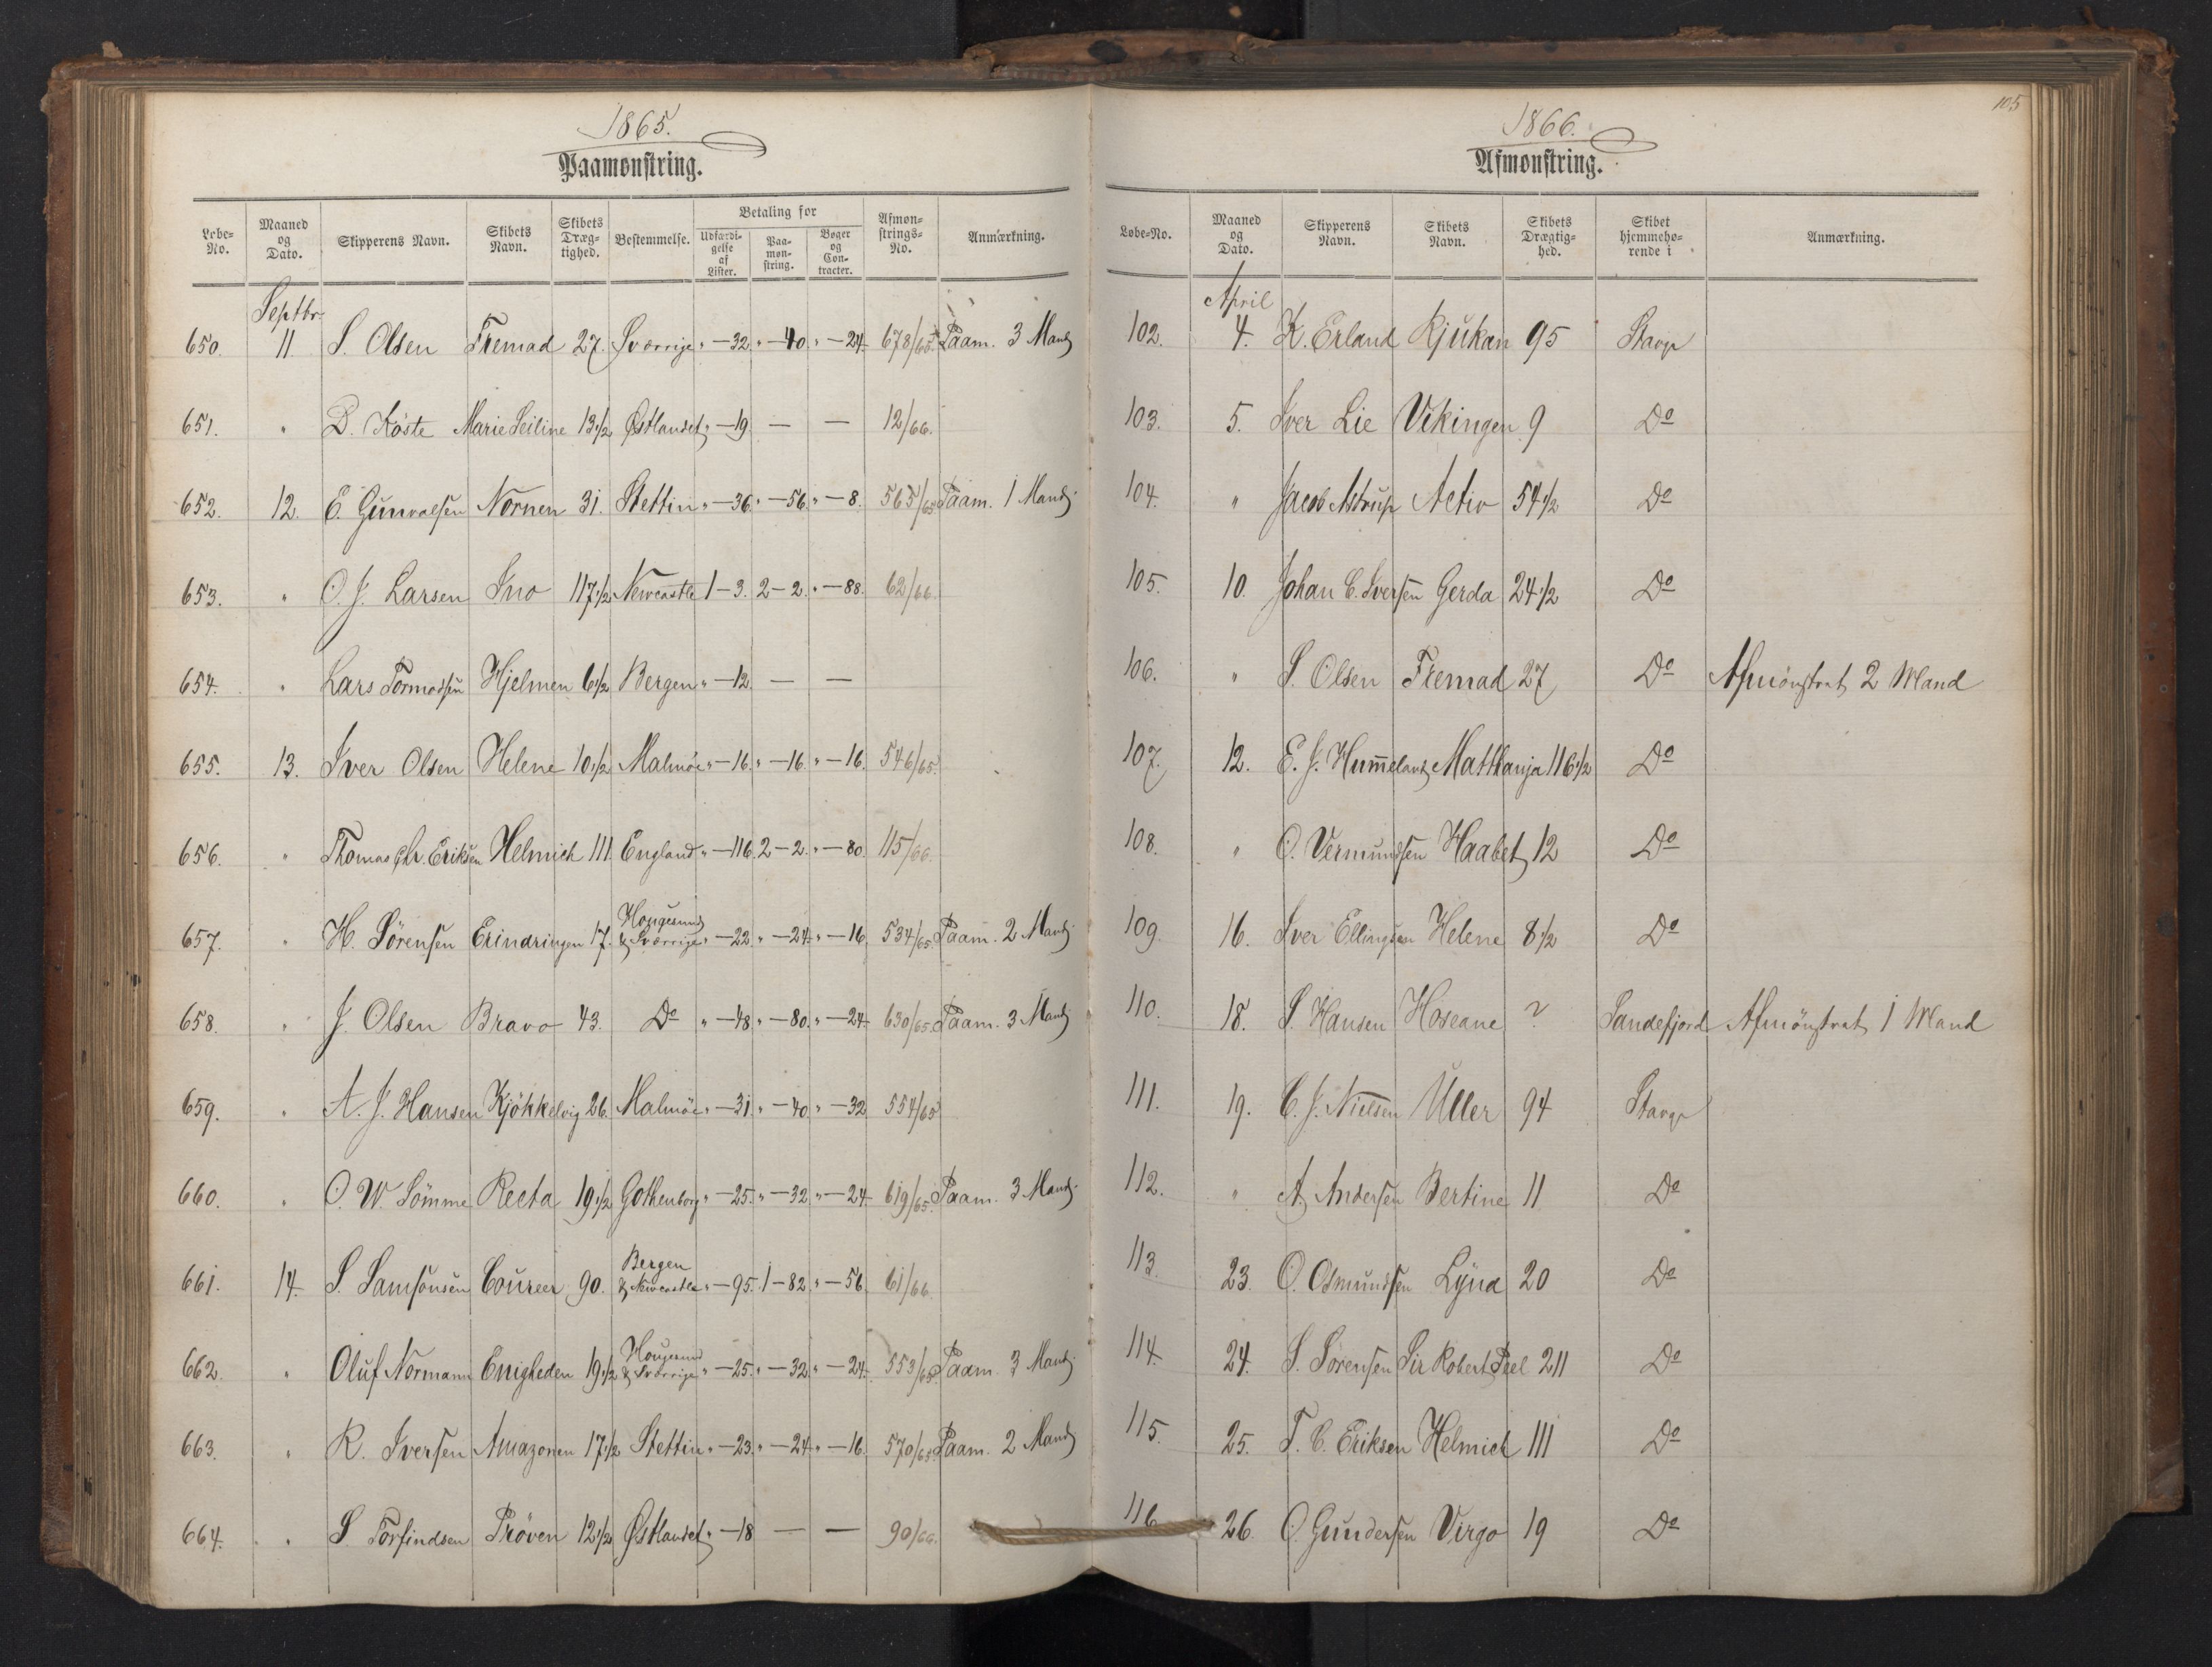 1865.
Paamønstring.
Løbe-No. Maaned og Dato. Skipperens Navn. Skibets Navn. Skibets Dræg-tighed. Bestemmelse. Betaling for Udfærdi-gelse af Lister. Paa-møn-string. Bøger og Con-tracter. Afmøn-strings-No. Anmærkning.
Septbr.
650. 11 S. Olsen Fremad 27. Sverrige " — 32. " — 40. " — 24. 678/65. Paam. 3 Mand
651. " D. Köste Marie Seiline 13 1/2 Østlandet " — 19 — — 12/66.
652. 12. E. Gunvalsen Nornen 31. Stettin " — 36. " — 56. " — 8. 565/65 Paam. 1 Mand.
653. " O. J. Larsen Ino 117 1/2 Newcastle 1 — 3. 2 — 2. " — 88. 62/66.
654. " Lars Tormodsen Hjelmen 6 1/2 Bergen " — 12. — —
655. 13. Iver Olsen Helene 10 1/2 Malmöe " — 16. " — 16. " — 16. 546/65.
656. " Thomas Chr. Eriksen Helmich 111. England " — 116. 2 — 2. " — 80. 115/66.
657. " H. Sörensen Erindringen 17. Hougesund & Sverrige " — 22. " — 24. " — 16. 534/65. Paam. 2 Mand.
658. " J. Olsen Bravo 43. Do " — 48. " — 80. " — 24. 630/65. Paam. 3 Mand
659. " A. J. Hansen Kjökkelvig 26. Malmöe " — 31. " — 40. " — 32 554/65
660. " O. W. Sömme Recta 19 1/2 Gothenborg " — 25. " — 32. " — 24. 619/65. Paam. 3 Mand.
661. 14. S. Samsonsen Coureer 90. Bergen & Newcastle " — 95. 1 — 82. " — 56. 61/66.
662. " Oluf Normann Enigheden 19 1/2 Hougesund & Sverrige " — 25. " — 32. " — 24. 553/65. Paam. 3 Mand.
663. " R. Iversen Amazonen 17 1/2 Stettin " — 23. " — 24. " — 16. 570/65. Paam. 2 Mand
664. " S Torfindsen Pröven 12 1/2 Østlandet " — 18 — — 90/66.
105
1866.
Afmønstring.
Løbe-No. Maaned og Dato. Skipperens Navn. Skibets Navn. Skibets Drægtig-hed. Skibet hjemmehø-rende i Anmærkning.
April
102. 4. K. Erland Rjukan 95 Stavgr
103. 5. Iver Lie Vikingen 9 Do
104. " Jacob Astrup Activ 54 1/2 Do
105. 10. Johan C. Iversen Gerda 24 1/2 Do
106. " S. Olsen Fremad 27 Do Afmönstrat 2 Mand
107. 12. E. J. Hum̄eland Matthanja 116 1/2 Do
108. " O. Vermundsen Haabet 12 Do
109. 16. Iver Ellingsen Helene 8 1/2 Do
110. 18. S. Hansen Hoseane ? Sandefjord Afmönstrat 1 Mand
111. 19. C. J. Nielsen Uller 94 Stavgr
112. " A. Andersen Bertine 11 Do
113. 23. O. Osmundsen Lyna 20 Do
114. 24. S. Sörensen Sir Robert Peel 211 Do
115. 25. T. C. Eriksen Helmich 111 Do
116 26. O. Gundersen Virgo 19 Do